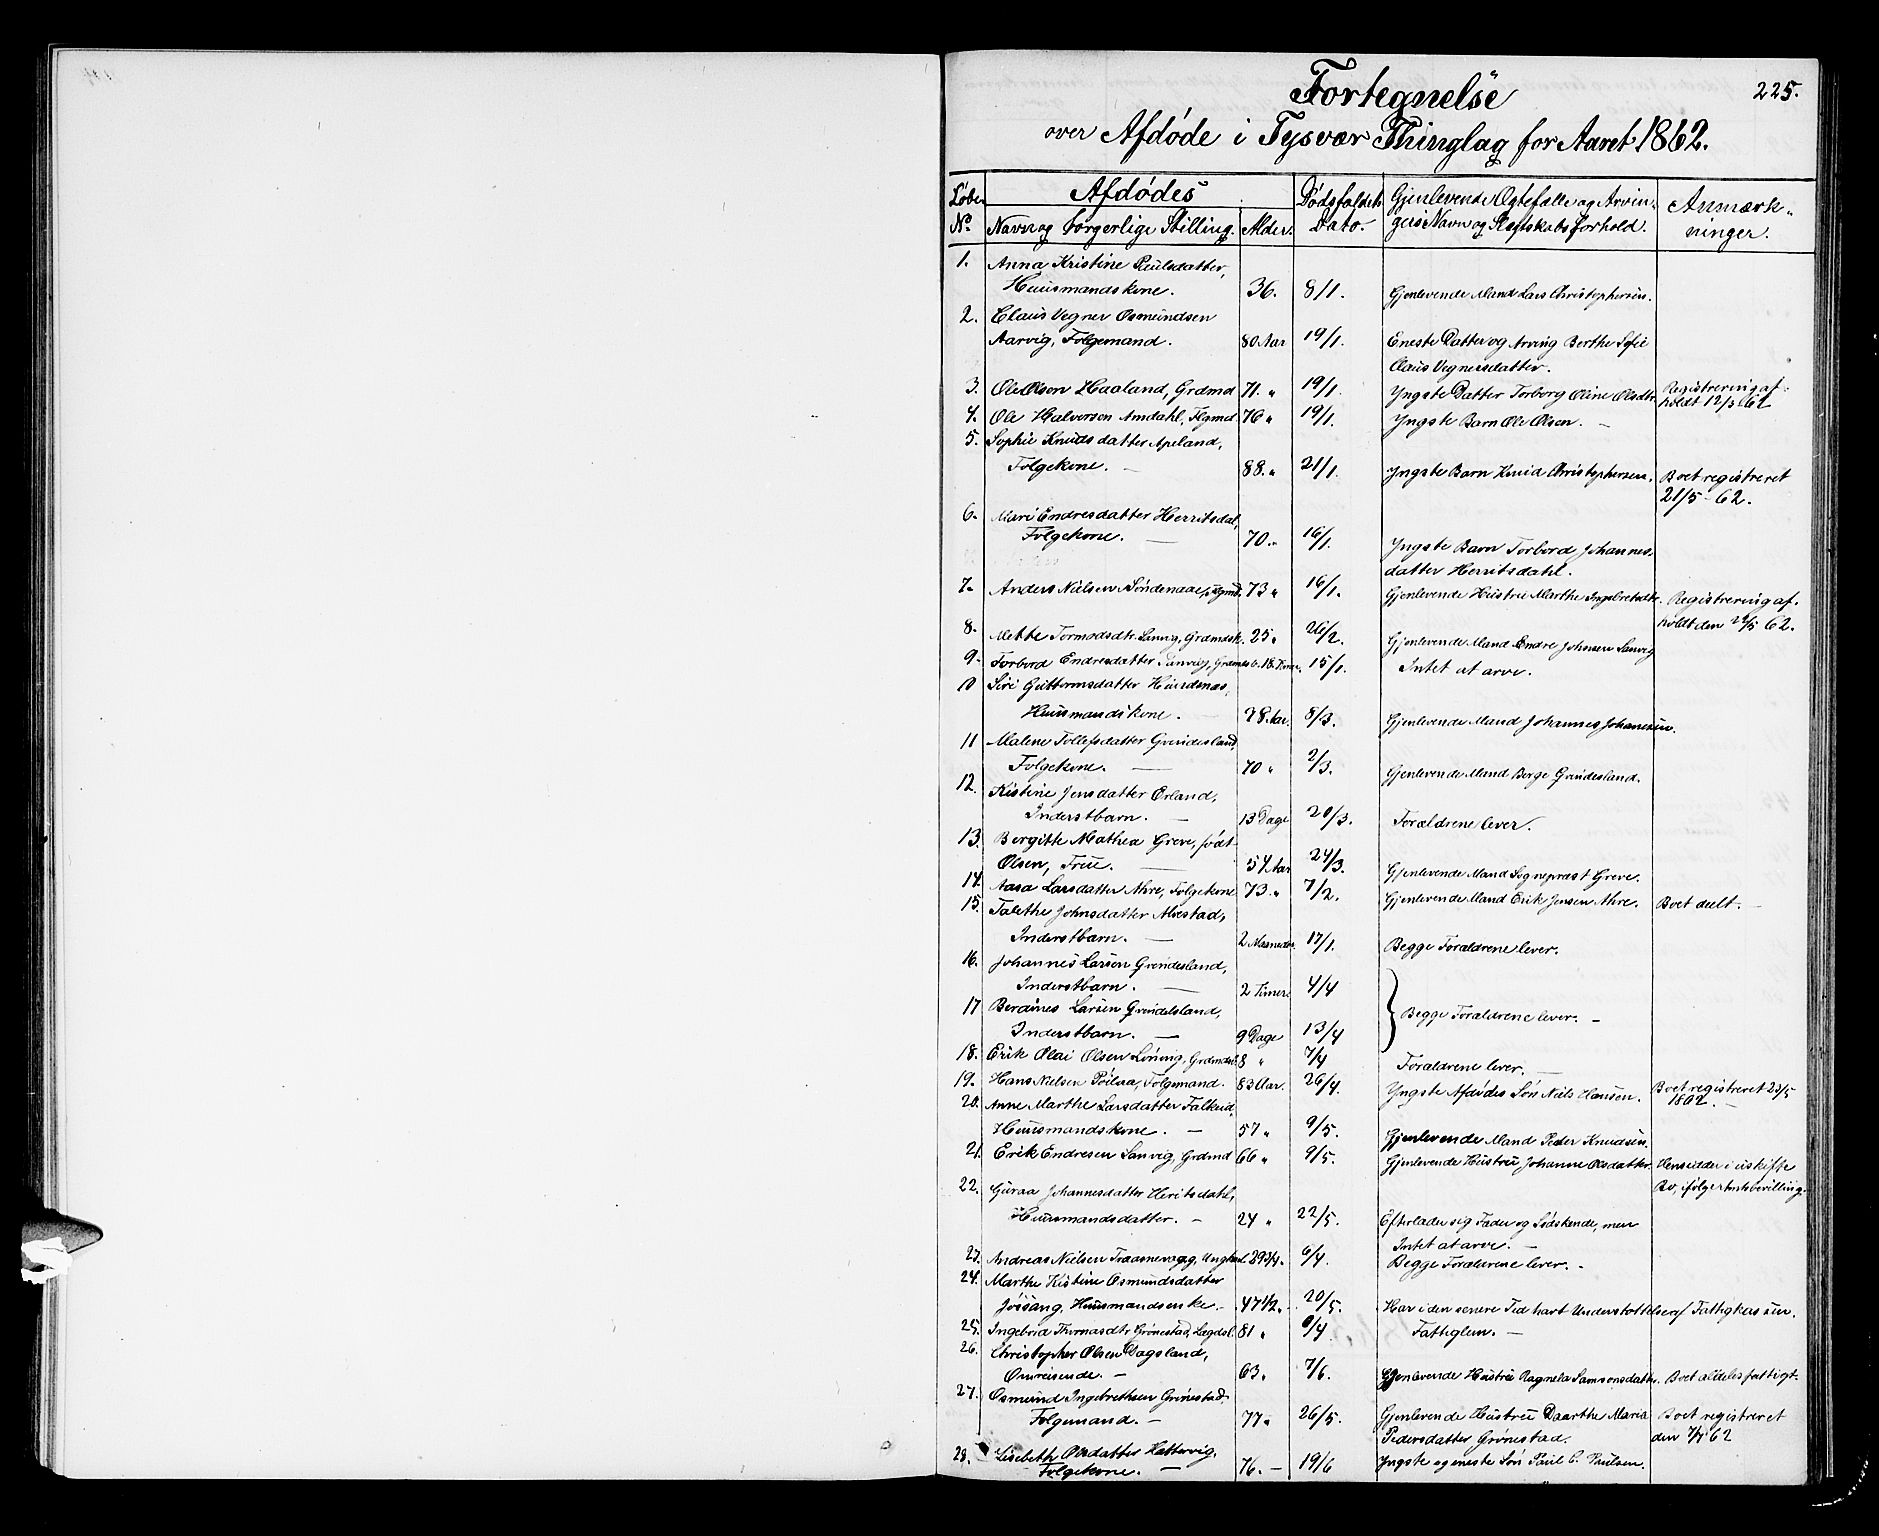 225.
Fortegnelse
over Afdøde i Tysvær Thinglag for Aaret 1862.
Løbe No. Afdødes Navn og borgerlige Stilling. Alder. Dødsfaldets Dato. Gjenlevende Ægtefælle og Arvingers Navn og Slægtskabsforhold. Anmærkninger.
1. Anna Kristine Paulsdatter,
Huusmandskone. 36. 8/1. Gjenlevende Mand Lars Christophersen.
2. Claus Vegner Osmundsen
Aarvig, Folgemand. 80 Aar 19/1. Eneste Datter og Arving Berthe Sofie
Claus Vegnersdatter.
3. Ole Olsen Haaland, Grdmd 71. " 19/1. Yngste Datter Torborg Oline Olsdtr. Registrering af-
holdt 12/5 62
4. Ole Halvorsen Amdahl, Flgmd 76 " 19/1. Yngste Barn Ole Olsen. —
5. Sophie Knudsdatter Apeland,
Folgekone. — 88. " 21/1. Yngste Barn Knud Christophersen. Boet registreret
21/5 - 62.
6. Mari Endresdatter Herritsdal,
Folgekone. — 70. " 16/1. Yngste Barn Torbord Johannes-
datter Herritsdahl.
7. Anders Nielsen Søndenaae, Flgmd. 73 " 16/1. Gjenlevende Hustru Marthe Ingebretsdtr. Registrering af-
holdt den 22/5 62.
8. Mette Tormodsdtr. Sanvig, Grdmdsk. 25 " 26/2. Gjenlevende Mand Endre Johnsen Sanvig
9. Torbord Endresdatter Sanvig, Grdmds b. 18 Timer. 15/1. Intet at arve.
10 Siri Guttormsdatter Hundsnæs,
Huusmandskone. — 78 Aar. 8/3. Gjenlevende Mand Johannes Johannesen.
11 Malene Tollefsdatter Grindesland,
Folgekone. — 70 " 2/3. Gjenlevende Mand Borge Grindesland.
12. Kistine Jensdatter Erland,
Inderstbarn. — 13 Dage 20/3. Forældrene lever.
13. Bergitte Mathea Greve, født
Olsen, Frue. — 54 Aar 24/3. Gjenlevende Mand Sognepræst Greve.
14. Aasa Larsdatter Ahre, Folgekone 73. " 7/2. Gjenlevende Mand Erik Jensen Ahre. Boet deelt. —
15. Talethe Johnsdatter Alvestad,
Inderstbarn. — 2 Maaneder. 17/1. Begge Forældrene lever.
16. Johannes Larsen Grindesland,
Inderstbarn. — 2 Timer 4/4
17 Berdines Larsen Grindelsland, Begge Forældrene lever. —
Inderstbarn. — 9 Dage 13/4
18. Erik Olai Olsen Lønvig, Grdmds. 8 " 7/4 Forældrene lever. —
19. Hans Nielsen Poilaa, Folgemand. 83 Aar. 26/4. Yngste Afdødes Søn Niels Hansen. Boet registreret 23/5
1862. —
20. Anne Marthe Larsdatter Falkeid,
Huusmandskone. — 57 " 9/5. Gjenlevende Mand Peder Knudsen.
21. Erik Endresen Sanvig, Grdmd 66 " 9/5. Gjenlevende Hustru Johanne Olsdatter. Hensidder i uskifte
Bo, ifølge Amtsbevilling.
22. Guraa Johannesdatter Heritsdahl,
Huusmandsdatter. — 24 " 22/5. Efterlader sig Fader og Sødskende, men
Intet at arve. —
23. Andreas Nielsen Traasnevaag, Ungkarl 29 3/4. 6/4. Begge Forældrene lever. —
24. Marthe Kistine Osmundsdatter
Jøssang, Huusmandsenke. — 47 1/2. 20/5. Har i den senere Tid havt Understøttelse af Fattigkassen.
25. Ingebrid Thomasdtr Grønestad, Lægdsl. 81 " 8/4. Fattiglem. —
26. Christopher Olsen Dagsland,
Omreisende. — 63. 7/6. Gjenlevende Hustru Ragnela Samsonsdatter. Boet aldeles fattigt.
27. Osmund Ingebrethsen Grønestad,
Folgemand. — 77 " 26/5. Gjenlevende Hustru Daarthe Maria Boet registreret
Pedersdatter Grønestad. den 7/7 62
28. Lisebeth Olsdatter Hattervig,
Folgekone. — 76. — 19/6 Yngste og eneste Søn Paul C. Paulsen.